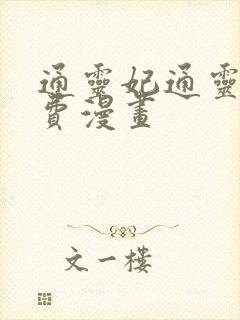 通靈妃通靈
費漫畫
文一樓